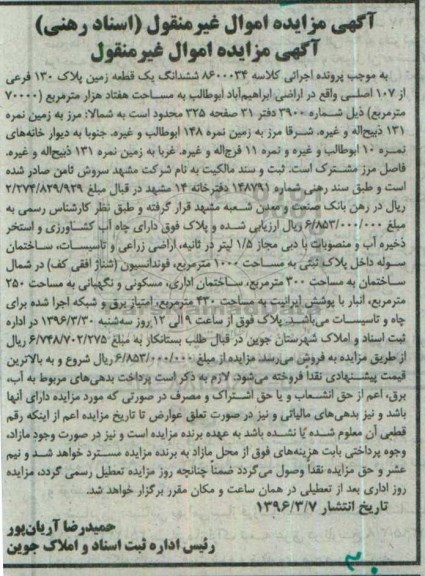 آگهی مزایده اموال غیرمنقول (اسناد رهنی)
آگهی مزایده اموال غیرمنقول
به موجب پرونده اجرائی کلاسه ۸۶۰۰۰۳۴ ششدانگ یک قطعه زمین پلاک ۱۳۰ فرعی
از ۱۰۷ اصلی واقع در اراضی ابراهیم‌آباد ابوطالب به مساحت هفتاد هزار مترمربع (۷۰۰۰۰
مترمربع) ذیل شماره ۳۹۰۰ دفتر ۳۱ صفحه ۳۲۵ محدود است به شمالا: مرز به زمین نمره
۱۳۱ ذبیح‌اله و غیره، شرقا مرز به زمین نمره ۱۴۸ ابوطالب و غیره، جنوبا به دیوار خانه‌های
نمره ۱۰ ابوطالب و غیره و نمره ۱۱ فرج‌اله و غیره، غربا به زمین نمره ۱۳۱ ذبیح‌اله و غیره،
فاصل مرز مشترک است. ثبت و سند مالکیت به نام شرکت مشهد سروش ثامن صادر شده
است و طبق سند رهنی شماره ۱۴۸۷۹۱ دفترخانه ۱۴ مشهد در قبال مبلغ ۲/۲۷۴/۸۲۹/۹۲۹
ریال در رهن بانک صنعت و معدن شعبه مشهد قرار گرفته و طبق نظر کارشناس رسمی به
مبلغ ۶/۸۵۳/۰۰۰/۰۰۰ ریال ارزیابی شده و پلاک فوق دارای چاه آب کشاورزی و استخر
ذخیره آب و منصوبات با دبی مجاز ۱/۵ لیتر در ثانیه، اراضی زراعی و تاسیسات، ساختمان
سوله داخل پلاک ثبتی به مساحت ۱۰۰۰ مترمربع، فونداسیون (شناژ افقی کف) در شمال
ساختمان به مساحت ۴۰۰ مترمربع، ساختمان اداری، مسکونی و نگهبانی به مساحت ۲۵۰
مترمربع، انبار با پوشش ایرانیت به مساحت ۴۳۰ مترمربع، امتیاز برق و شبکه اجرا شده برای
چاه و تاسیسات می‌باشد. پلاک فوق از ساعت ۹ الی ۱۲ روز سه‌شنبه ۱۳۹۶/۳/۳۰ در اداره
ثبت اسناد و املاک شهرستان جوین در قبال طلب بستانکار به مبلغ ۶/۷۴۸/۷۰۲/۲۷۵ ریال
از طریق مزایده به فروش می‌رسد مزایده از مبلغ ۶/۸۵۳/۰۰۰/۰۰۰ ریال شروع و به بالاترین
قیمت پیشنهادی نقدا فروخته می‌شود، لازم به ذکر است پرداخت بدهی‌های مربوط به آب،
برق، اعم از حق انشعاب و یا حق اشتراک و مصرف در صورتی که مورد مزایده دارای آنها
باشد و نیز بدهی‌های مالیاتی و نیز در صورت تعلق عوارض تا تاریخ مزایده اعم از اینکه رقم
قطعی آن معلوم شده یا نشده باشد به عهده برنده مزایده است و نیز در صورت وجود مازاد،
وجوه پرداختی بابت هزینه‌های فوق از محل مازاد به برنده مزایده مسترد خواهد شد و نیم
عشر و حق مزایده نقدا وصول می‌گردد ضمنا چنانچه روز مزایده تعطیل رسمی گردد، مزایده
روز اداری بعد از تعطیلی در همان ساعت و مکان مقرر برگزار خواهد شد.
تاریخ انتشار ۱۳۹۶/۳/۷
حمیدرضا آریان‌پور
رئیس اداره ثبت اسناد و املاک جوین